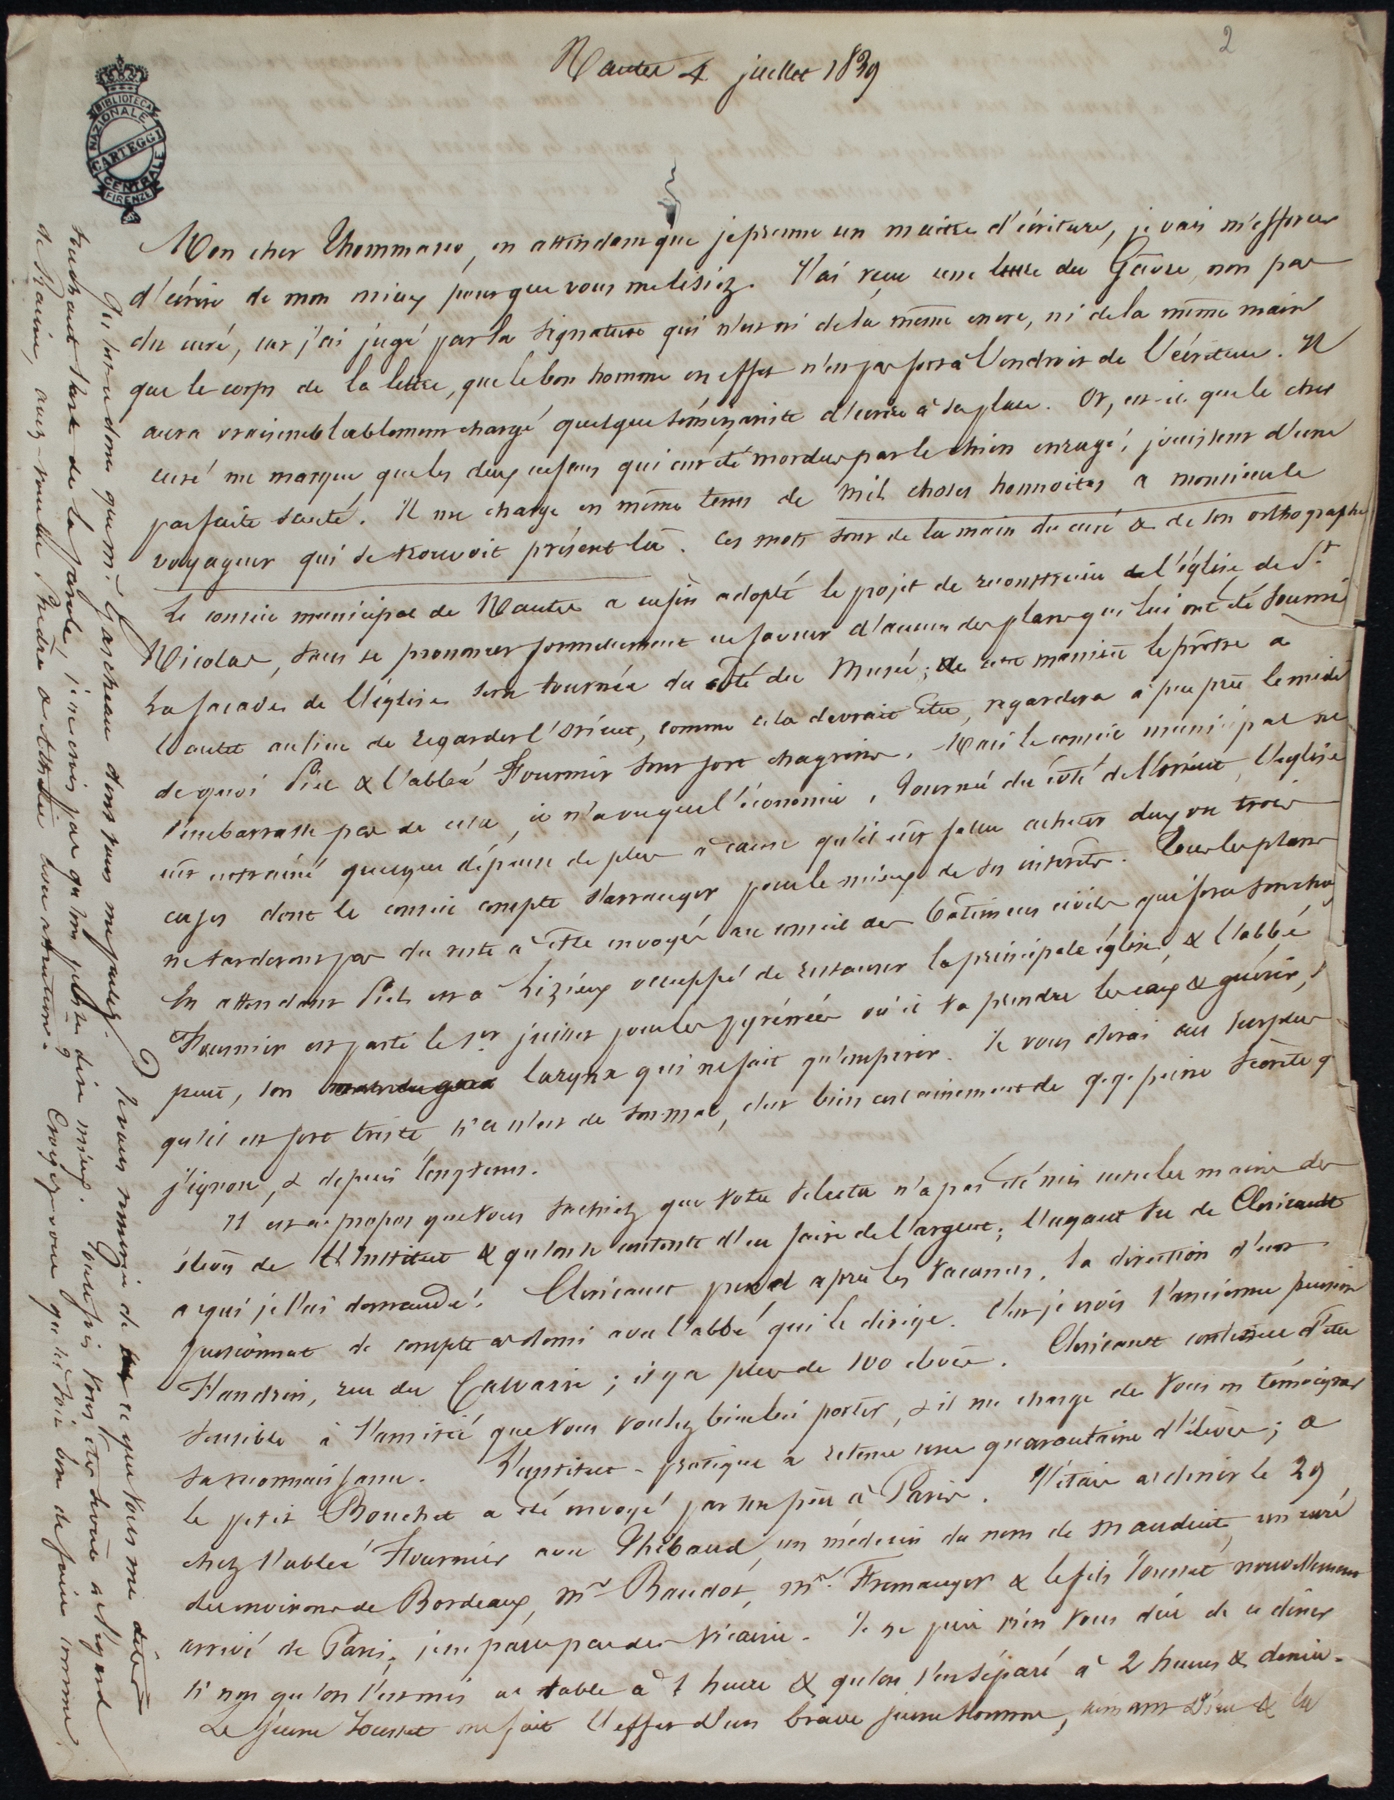 2
Nantes 4 juillet 1839
BIBLIOTECA
NAZIONALE
CARTEGGI
CENTRALE
FIRENZE
Mon cher Thommaseo, en attendant que je prenne un maitre d'écriture, je vais m'efforcer
d'écrire de mon mieux pour que vous me lisiez. J'ai reçu une lettre du Gâvre, non pas
du curé, car j'ai jugé par la signature qui n'est ni de la même encre, ni de la même main
que le corps de la lettre, que le bon homme en effet n'est pas fort à l'endroit de l'écriture. Il
aura vraisemblablement chargé quelque séminariste d'écrire à sa place. Or, est-il que le cher
curé me marque que les deux enfans qui ont été mordus par le chien enragé, jouissent d'une
parfaite santé. Il me charge en même tems de mil choses honnoites a monsieur le
voyageur qui se trouvoit présent là. Ces mots sont de la main du curé & de son orthographe
Le conseil municipal de Nantes a enfin adopté le projet de reconstruire l'église de St.
Nicolas, sans se prononcer formellement en faveur d'aucun des plans qui lui ont été soumis
La façade de l'église sera tournée du côté du Musée; de cette manière le prêtre a
l'autel au lieu de regarder l'Orient, comme cela devrait être, regardera à peu près le midi
de quoi Piel & l'abbé Fournier sont fort chagrins. Mais le conseil municipal ne
s'embarrasse pas de cela, il n'a vu que l'économie. Tournée du côté de l'orient, l'église
eût entraîné quelque dépense de plus à cause qu'il eût fallu acheter deux ou trois
cujes dont le conseil compte s'arranger pour le mieux de ses intérêts. Tous les plans
ne tarderont pas du reste à être envoyés au conseil des bâtimens civils qui fera son choix
En attendant Piel est à Lizieux occuppé de restaurer la principale église & l'abbé
Fournier est parti le 1er juillet pour les pyrénées où il va prendre les eaux & guérir, s'il
peut, son larynx qui ne fait qu'empirer. Je vous dirai au surplus
qu'il est fort triste, si ce n'est de son mal, c'est bien certainement de q.q. peine secrète q
j'ignore, & depuis longtems.
Il est à propos que vous sachiez que votre Selecta n'a pas été mis entre les mains des
élèves de l'Institut & qu'on se contente d'en faire de l'argent; l'ayant su de Cloriault
a qui je l'ai demandé. Cloriault prend après les vacances, la direction d'un
pensionnat de compte à demi avec l'abbé qui le dirige. C'est je crois l'ancienne pension
Flandrin, rue du Calvaire; il y a plus de 100 élèves. Cloriault continue d'être
sensible à l'amitié que vous voulez bien lui porter, & il me charge de vous en témoigner
sa reconnaissance. L'institut-pratique a retenu une quarantaine d'élèves; &
le petit Bouchet a été envoyé par son père à Paris. J'étais a diner le 29
chez l'abbé Fournier avec Thébaud, un médecin du nom de Mauduit, un curé
des environs de Bordeaux, Mr Baudot, Mr. Fremanger & le fils Tousset nouvellement
arrivé de Paris, j'en passe par des vicaires. Je ne puis rien vous dire de ce diner
si non qu'on s'est mis à table à 1 heure & qu'on s'est séparé à 2 heures & demie.
Le jeune Tousset me fait l'effet d'un brave jeune homme, aimant Dieu & la
Qu'est-ce donc que Mr. Garcheau dont vous me parlez. Je vous remercie de ce que vous me dites
touchant l'art de la parole, je ne crois pas qu'on puisse dire mieux. Toutefois vous êtes sévère à l'égard
de Racine, avez-vous lu Phèdre & Athalie bien attentivement? Croyez-vous qu'il soit bon de faire comme